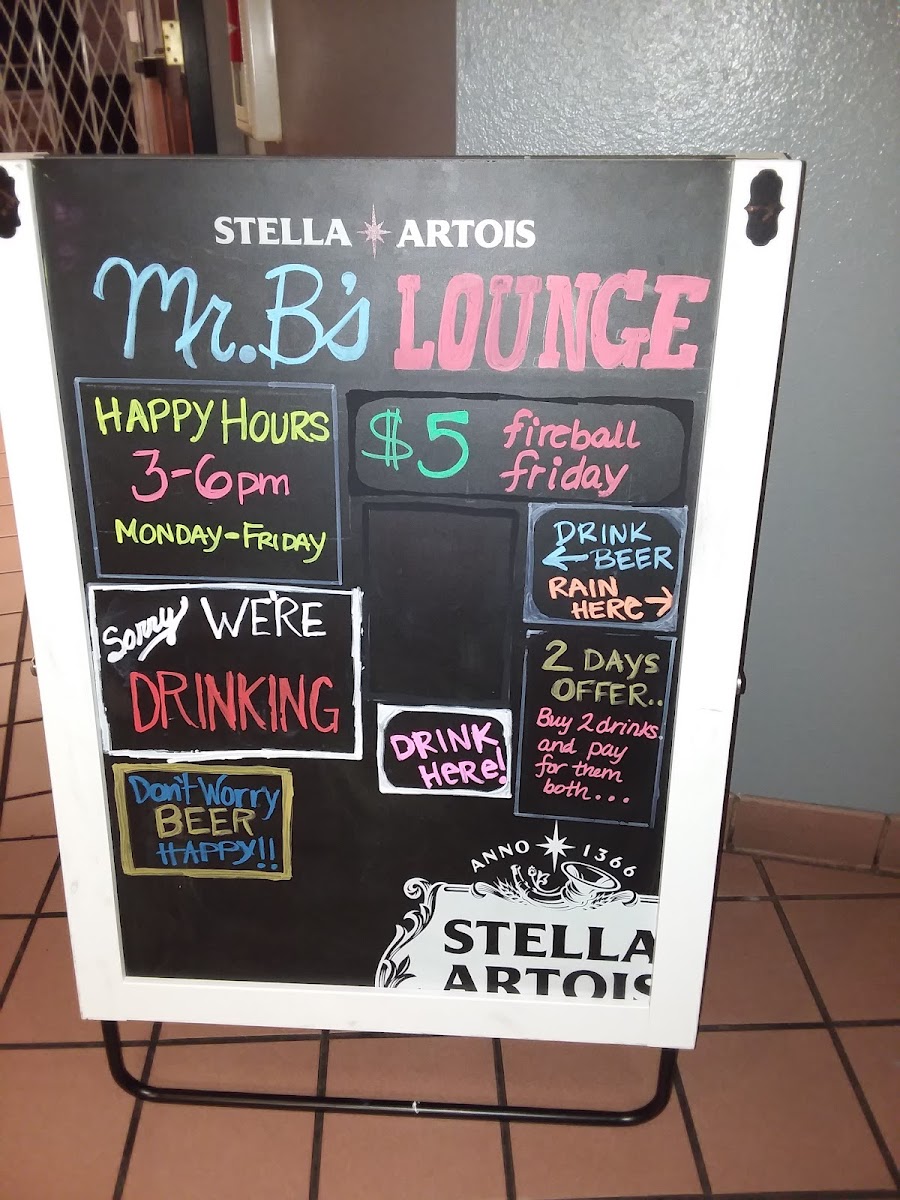 STELLA ARTOIS
Mr. B's LOUNGE
HAPPY HOURS
3-6pm
MONDAY-FRIDAY
$5 fireball
friday
DRINK
← BEER
RAIN
HERE →
Sorry WE'RE
DRINKING
2 DAYS
OFFER..
Buy 2 drinks
and pay
for them
both...
DRINK
Here!
Don't Worry
BEER
HAPPY!!
ANNO 1366
STELLA
ARTOIS